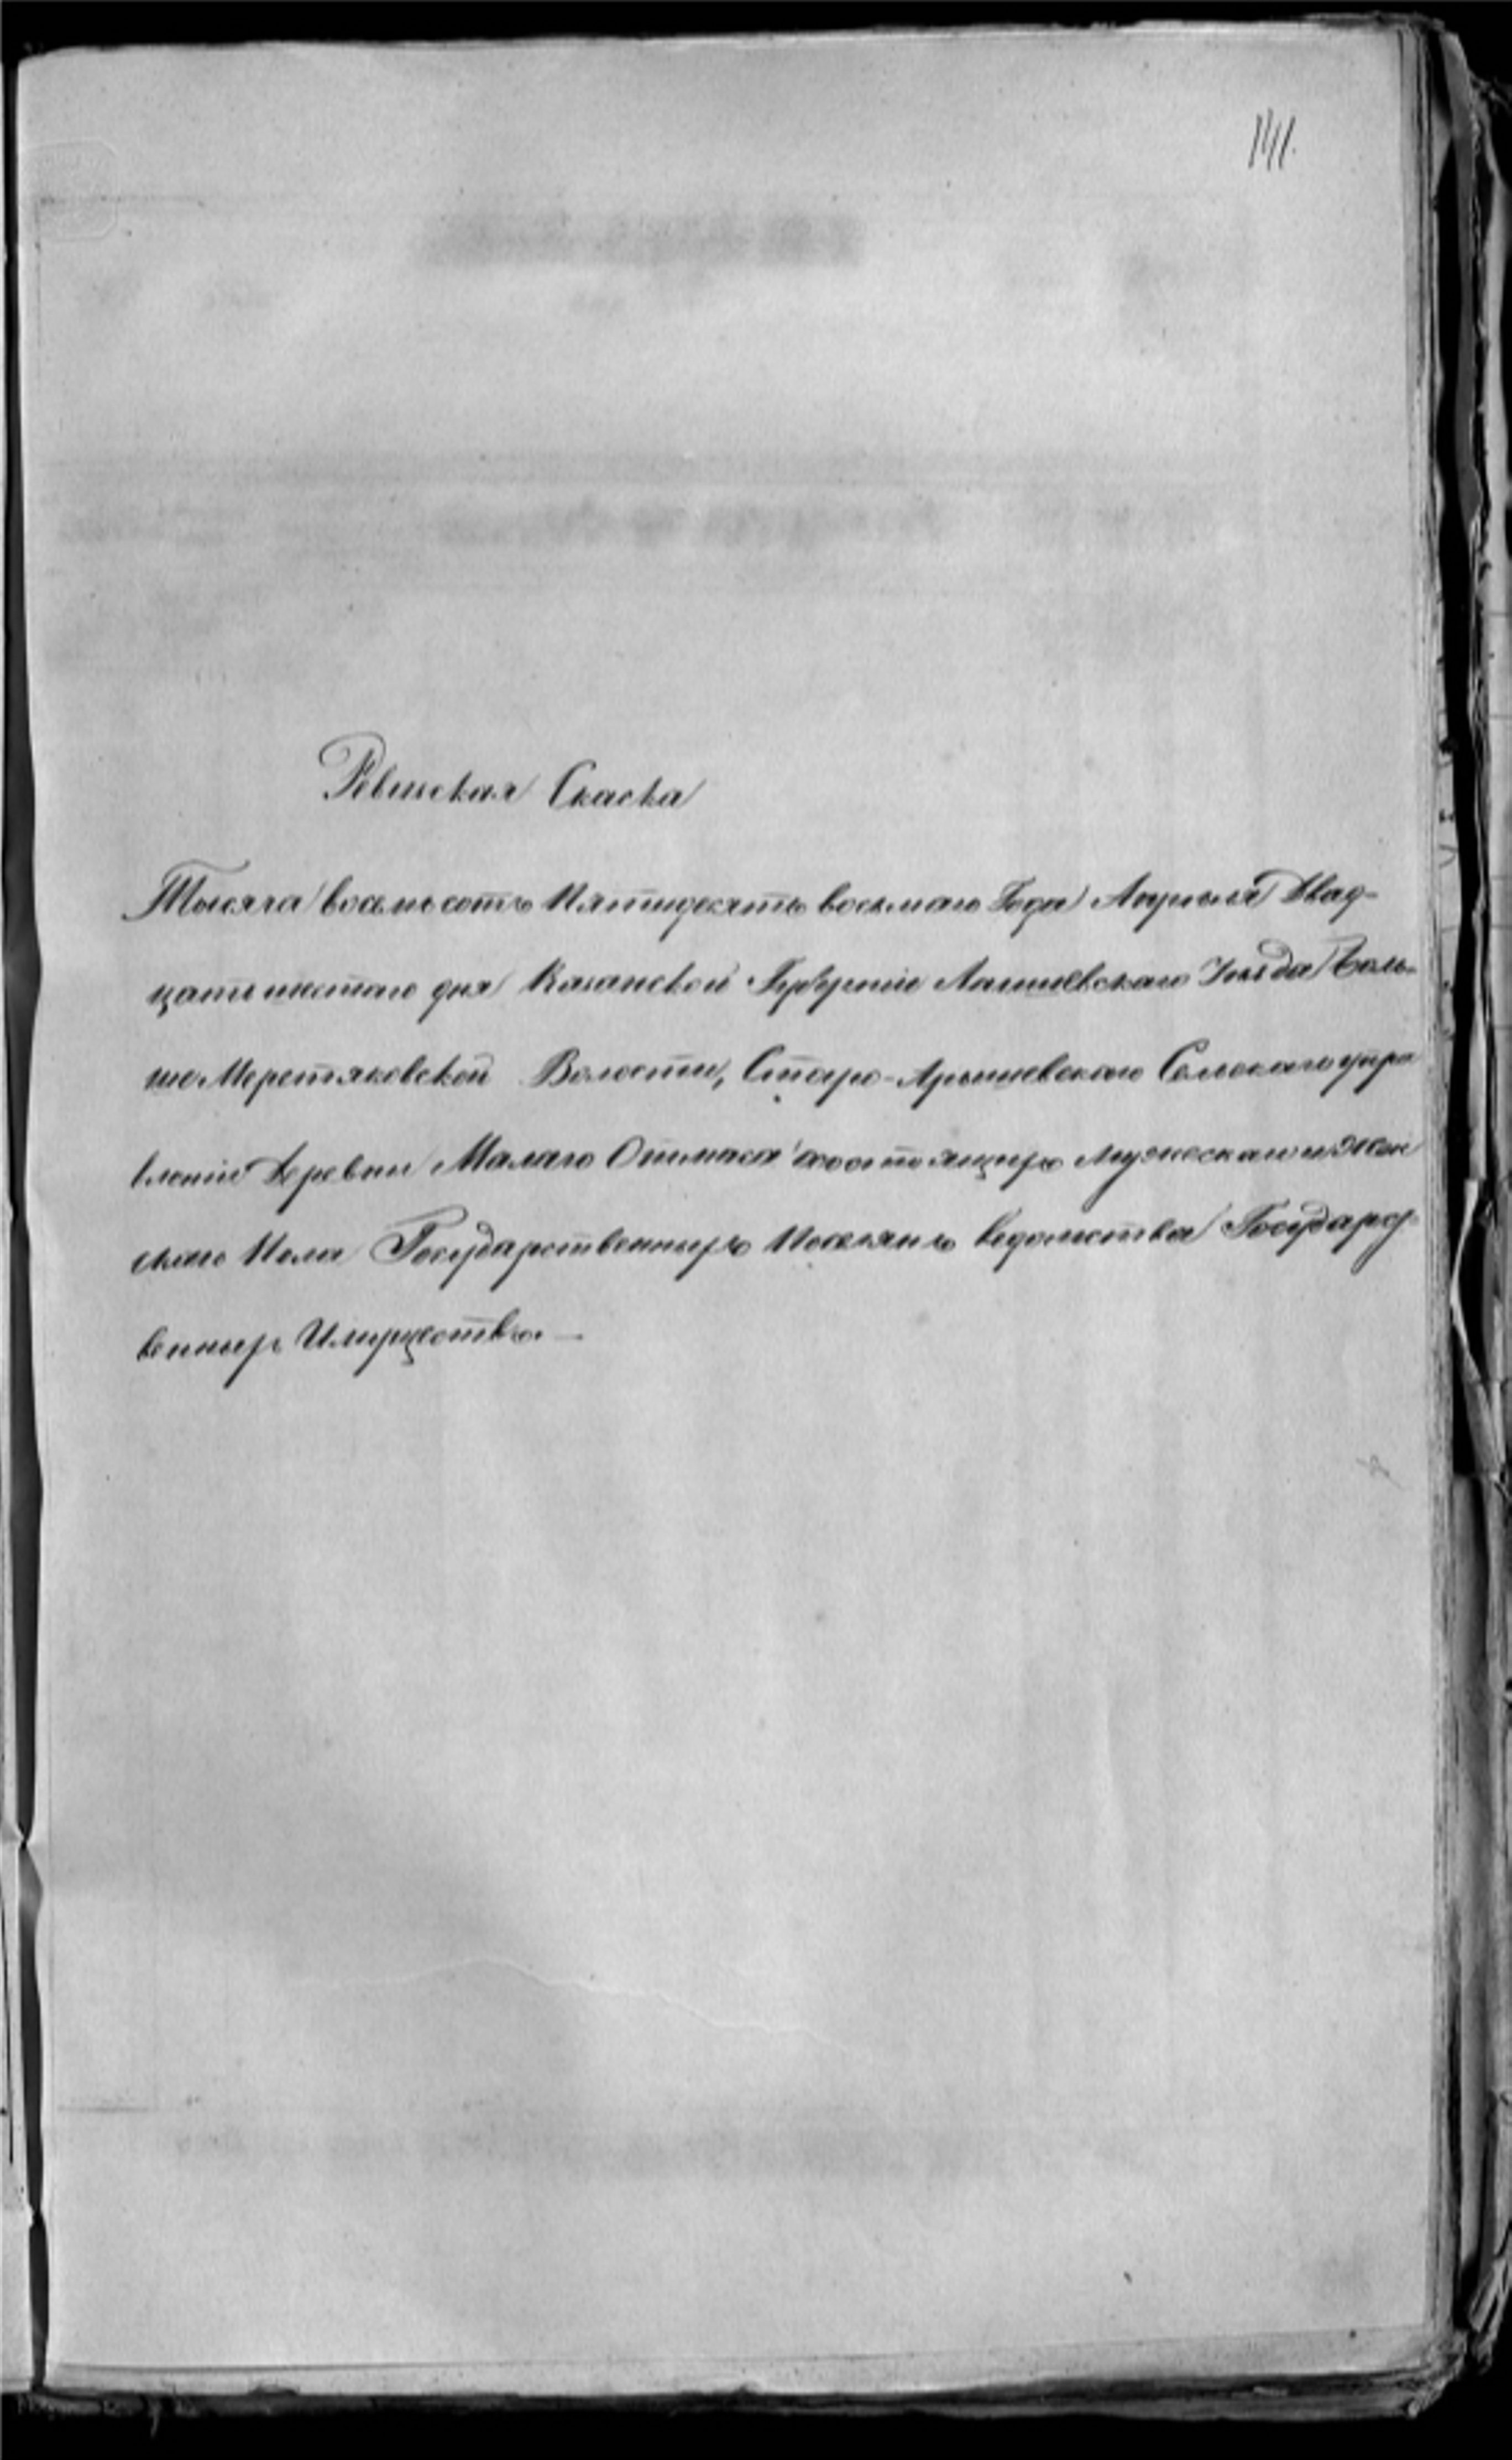 141.
Ревизская Скаска
Тысяча восемьсотъ Пятидесятъ восьмаго Года Апреля Двад-
цать шестаго дня Казанской Губерніи Лаишевскаго Уезда Боль-
ше Меретяковской Волости, Старо-Арышевскаго Сельскаго упра
вленія Деревни Малаго Отмаса состоящихъ Мужескаго и Жен
скаго Пола Государственныхъ Поселянъ ведомства Государст
венныхъ Имуществъ. —